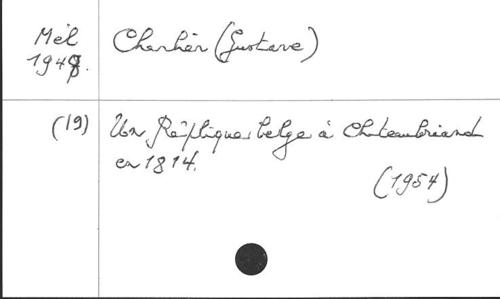 Mél Charlier (Gustave)
1948.
(19) Une Réplique belge à Chateaubriand
en 1814.
(1954)